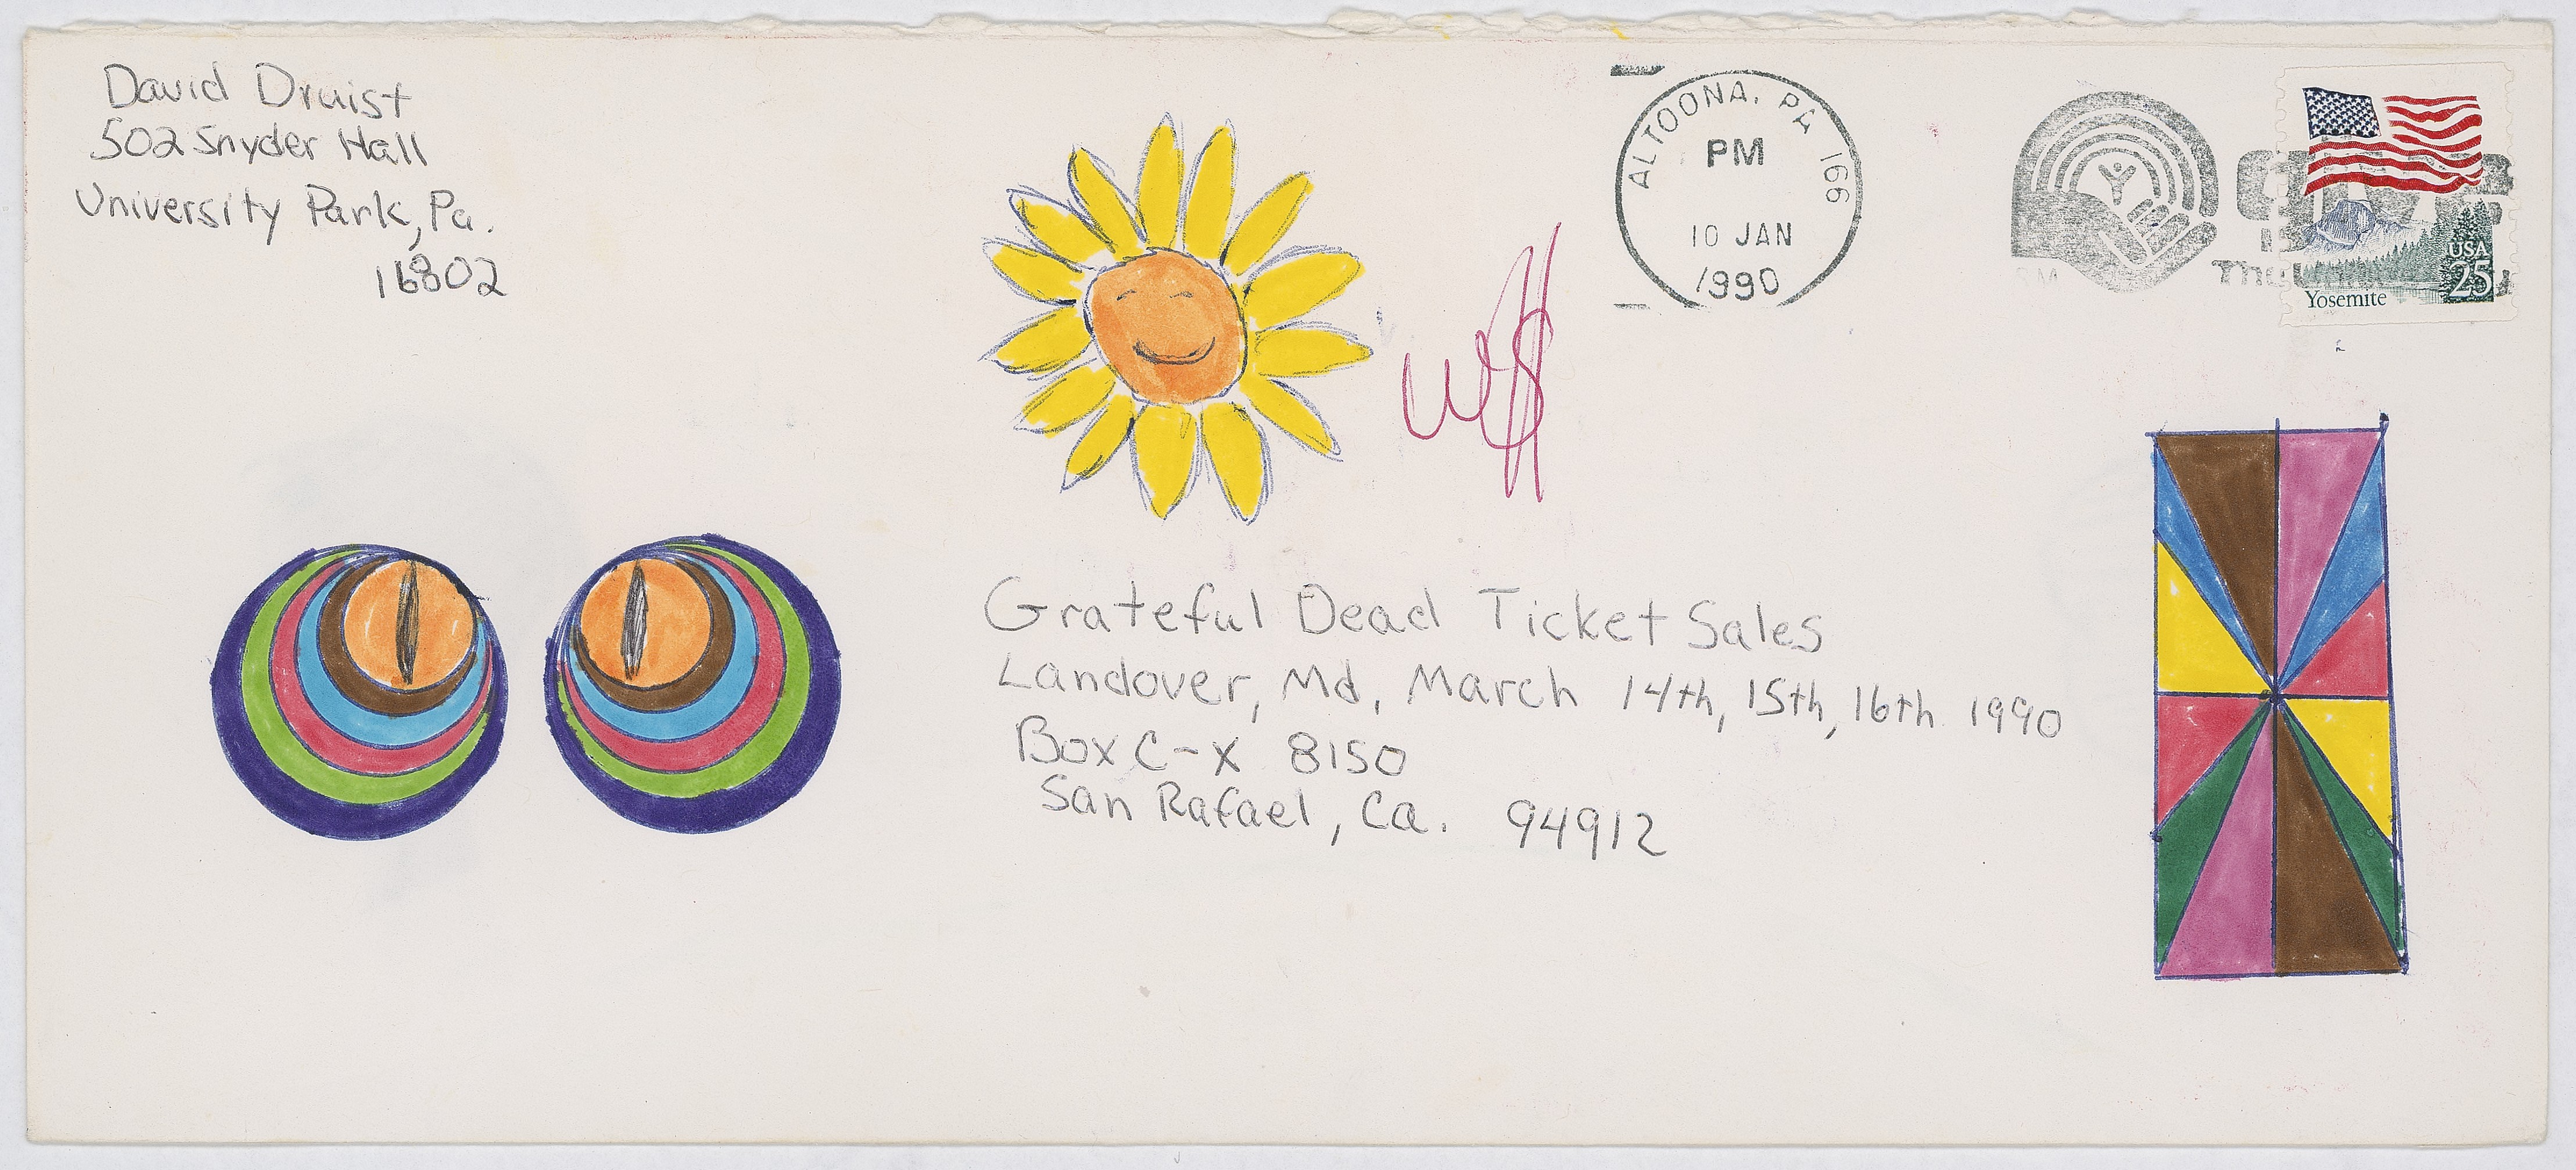 David Draist
502 Snyder Hall
University Park, Pa.
16802
ALTOONA, PA 166
PM
10 JAN
1990
USA
25
Yosemite
Grateful Dead Ticket Sales
Landover, Md, March 14th, 15th, 16th 1990
Box C-X 8150
San Rafael, Ca. 94912